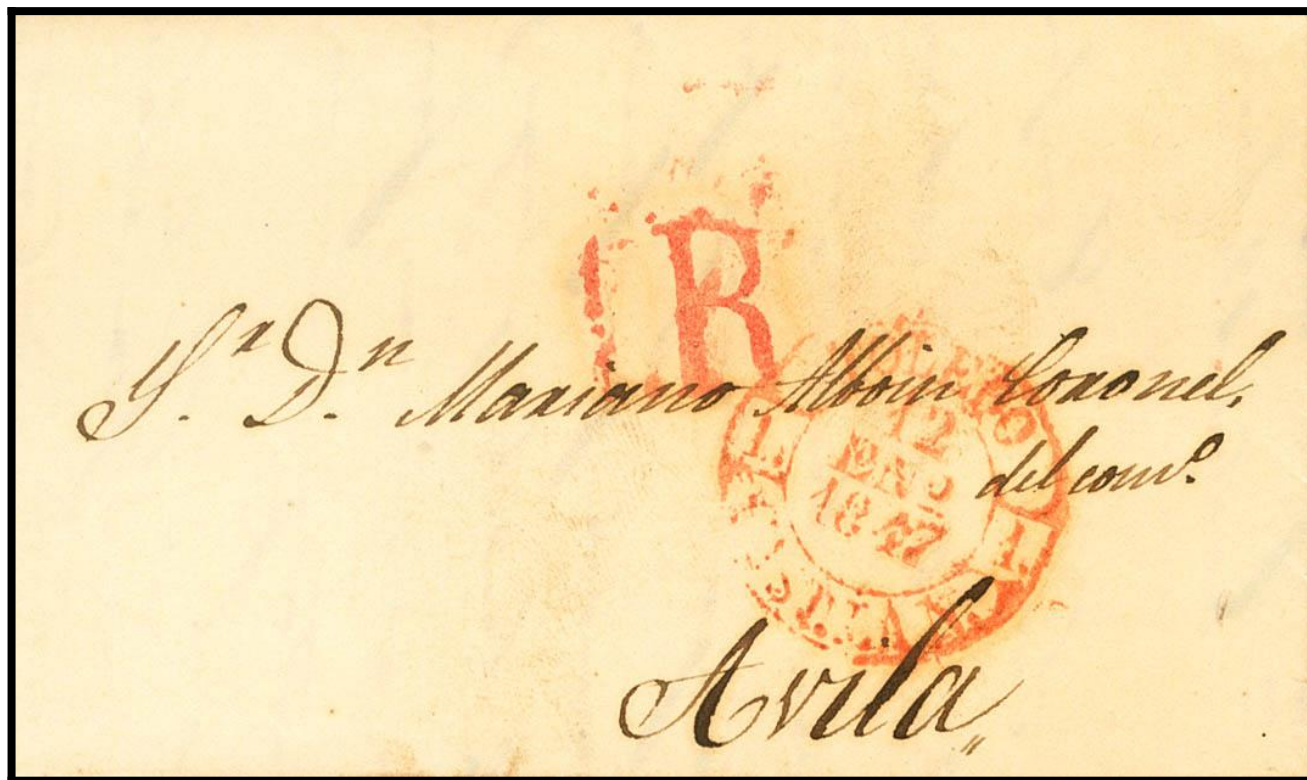 R
S.ʳ D.ⁿ Mariano Alboin Coronel,
del com.º
12
ENE
1847
1.
1.
Avila